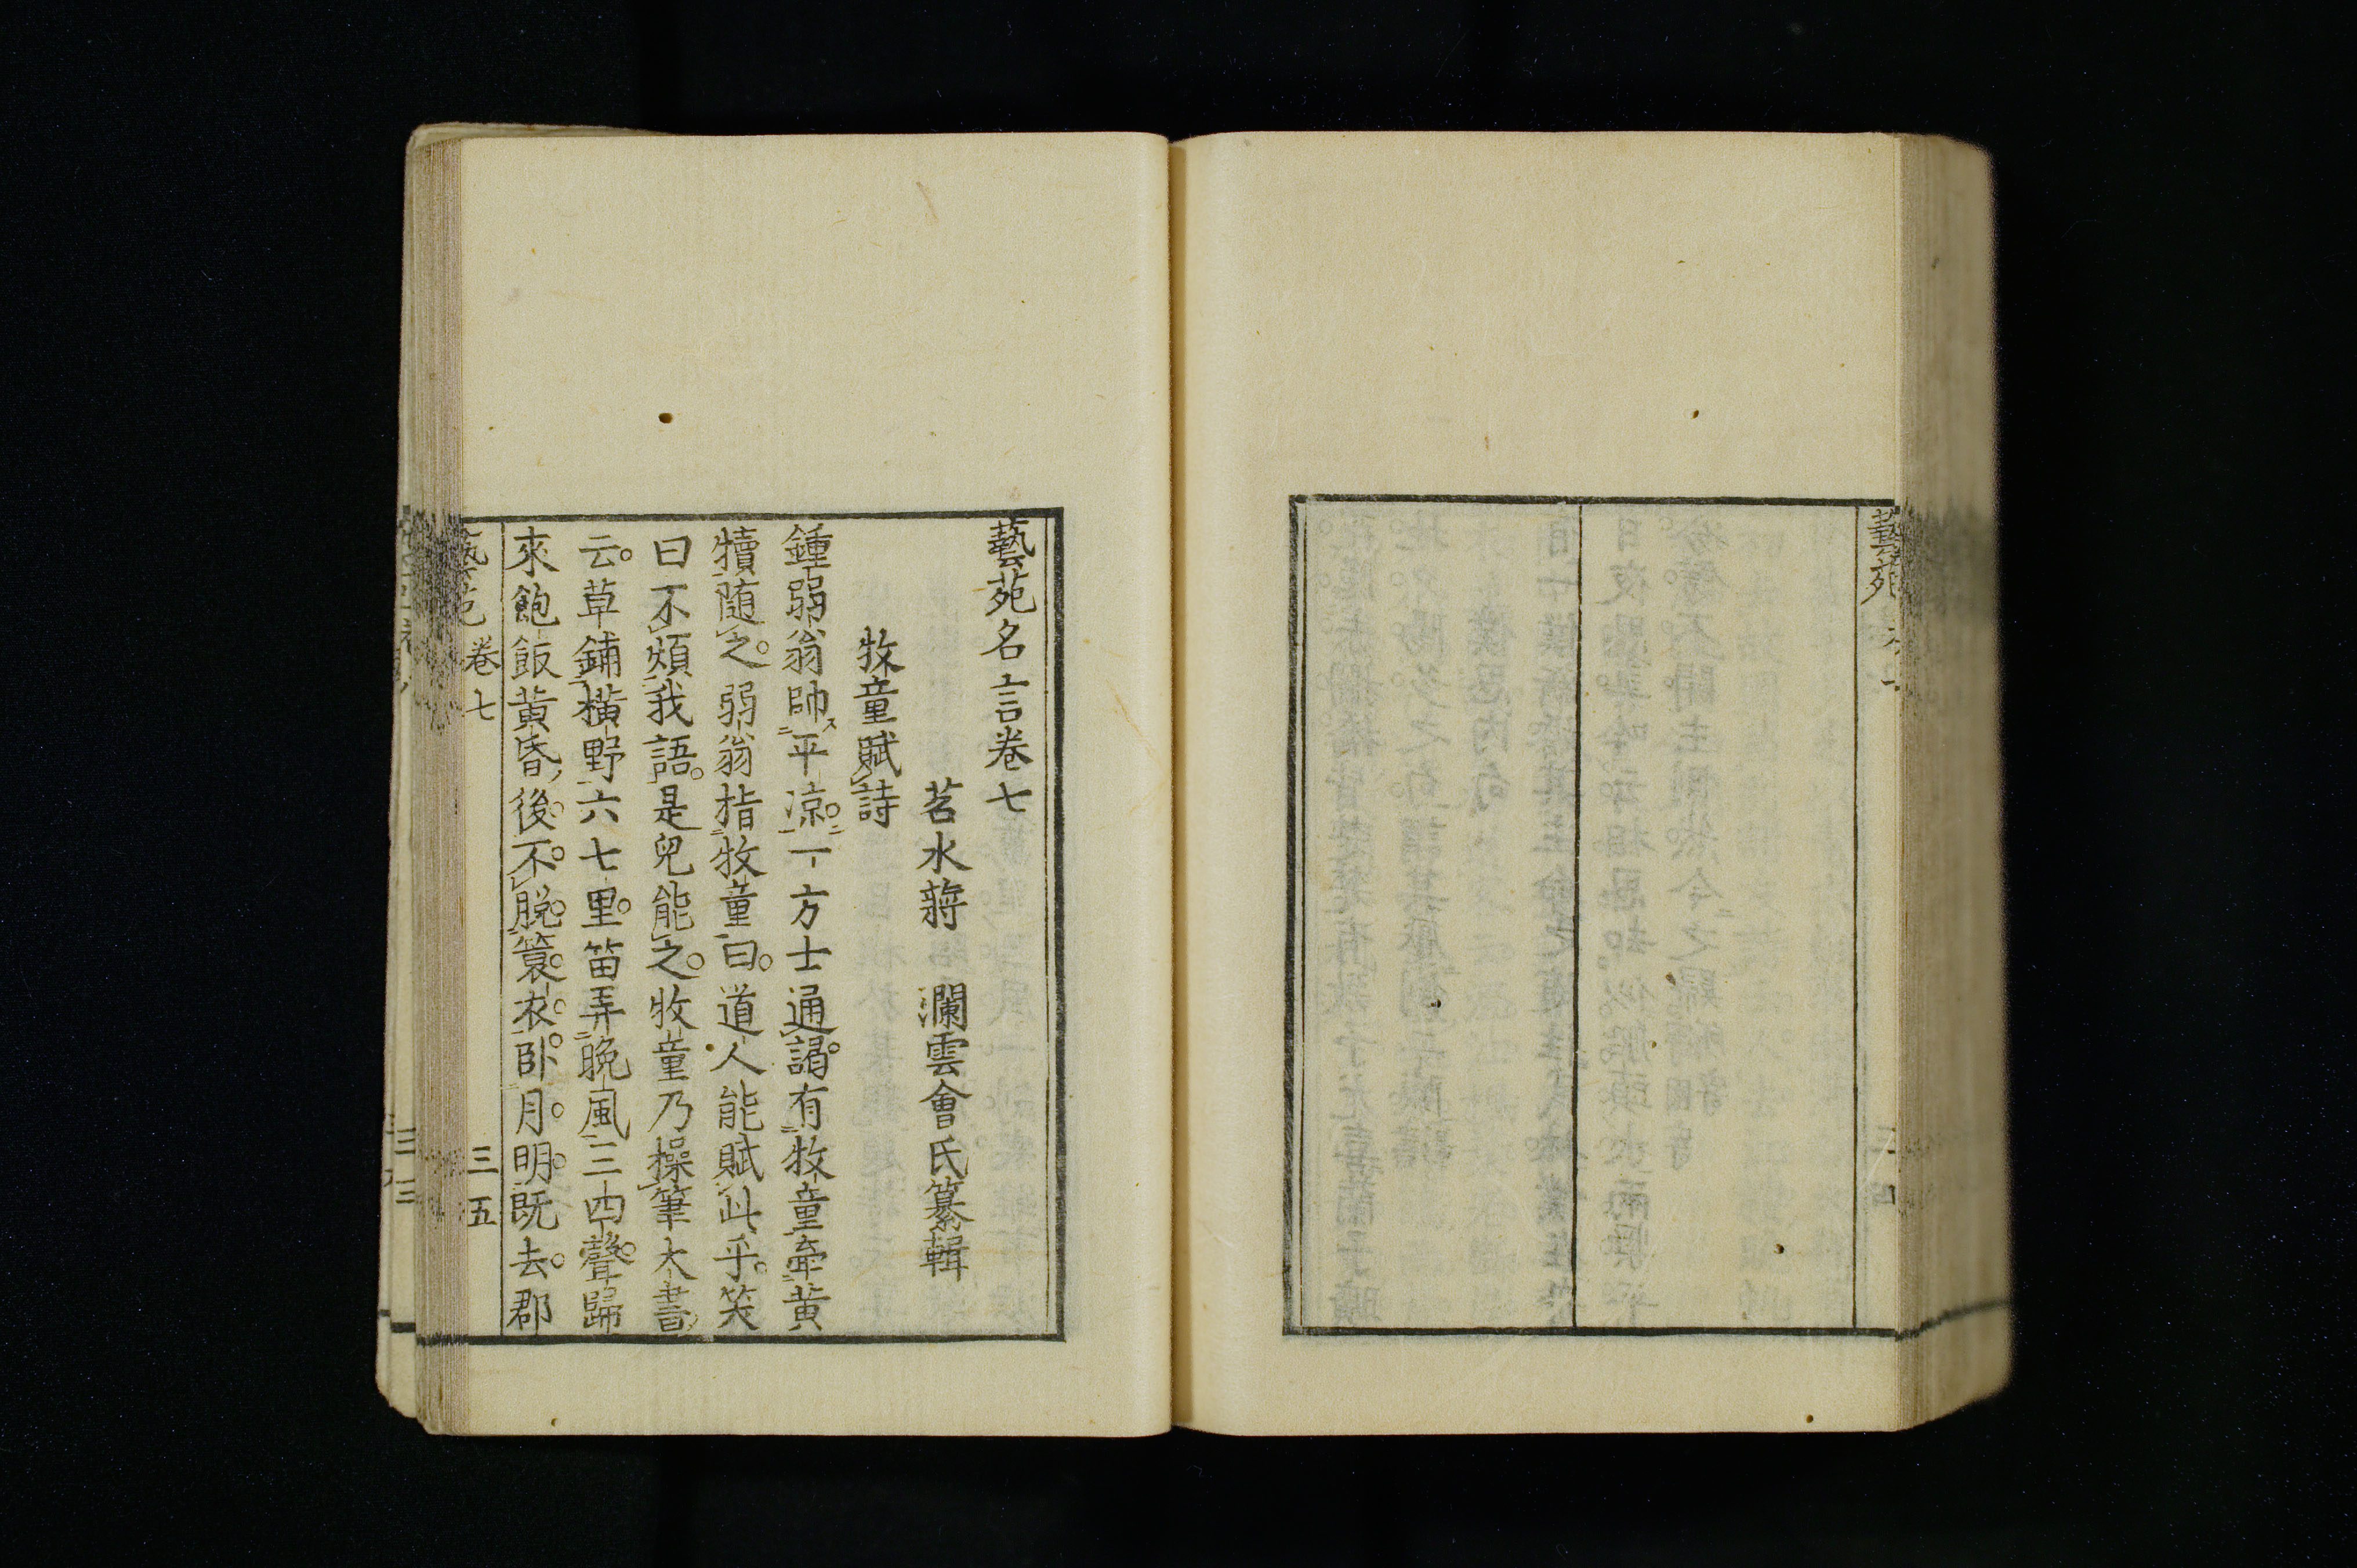 藝苑
藝苑名言卷七
苕水蔣　瀾雲會氏纂輯
牧童賦詩
鍾弱翁帥平凉。一方士通謁。有牧童牽黄
犢随之。弱翁指牧童曰。道人能賦此乎。笑
曰不煩我語。是兒能之。牧童乃操筆大書
云。草鋪横野六七里。笛弄晩風三四聲。歸
來飽飯黄昏後。不。脱。簑。衣。卧。月。明。既去。郡
藝苑　卷七　三五